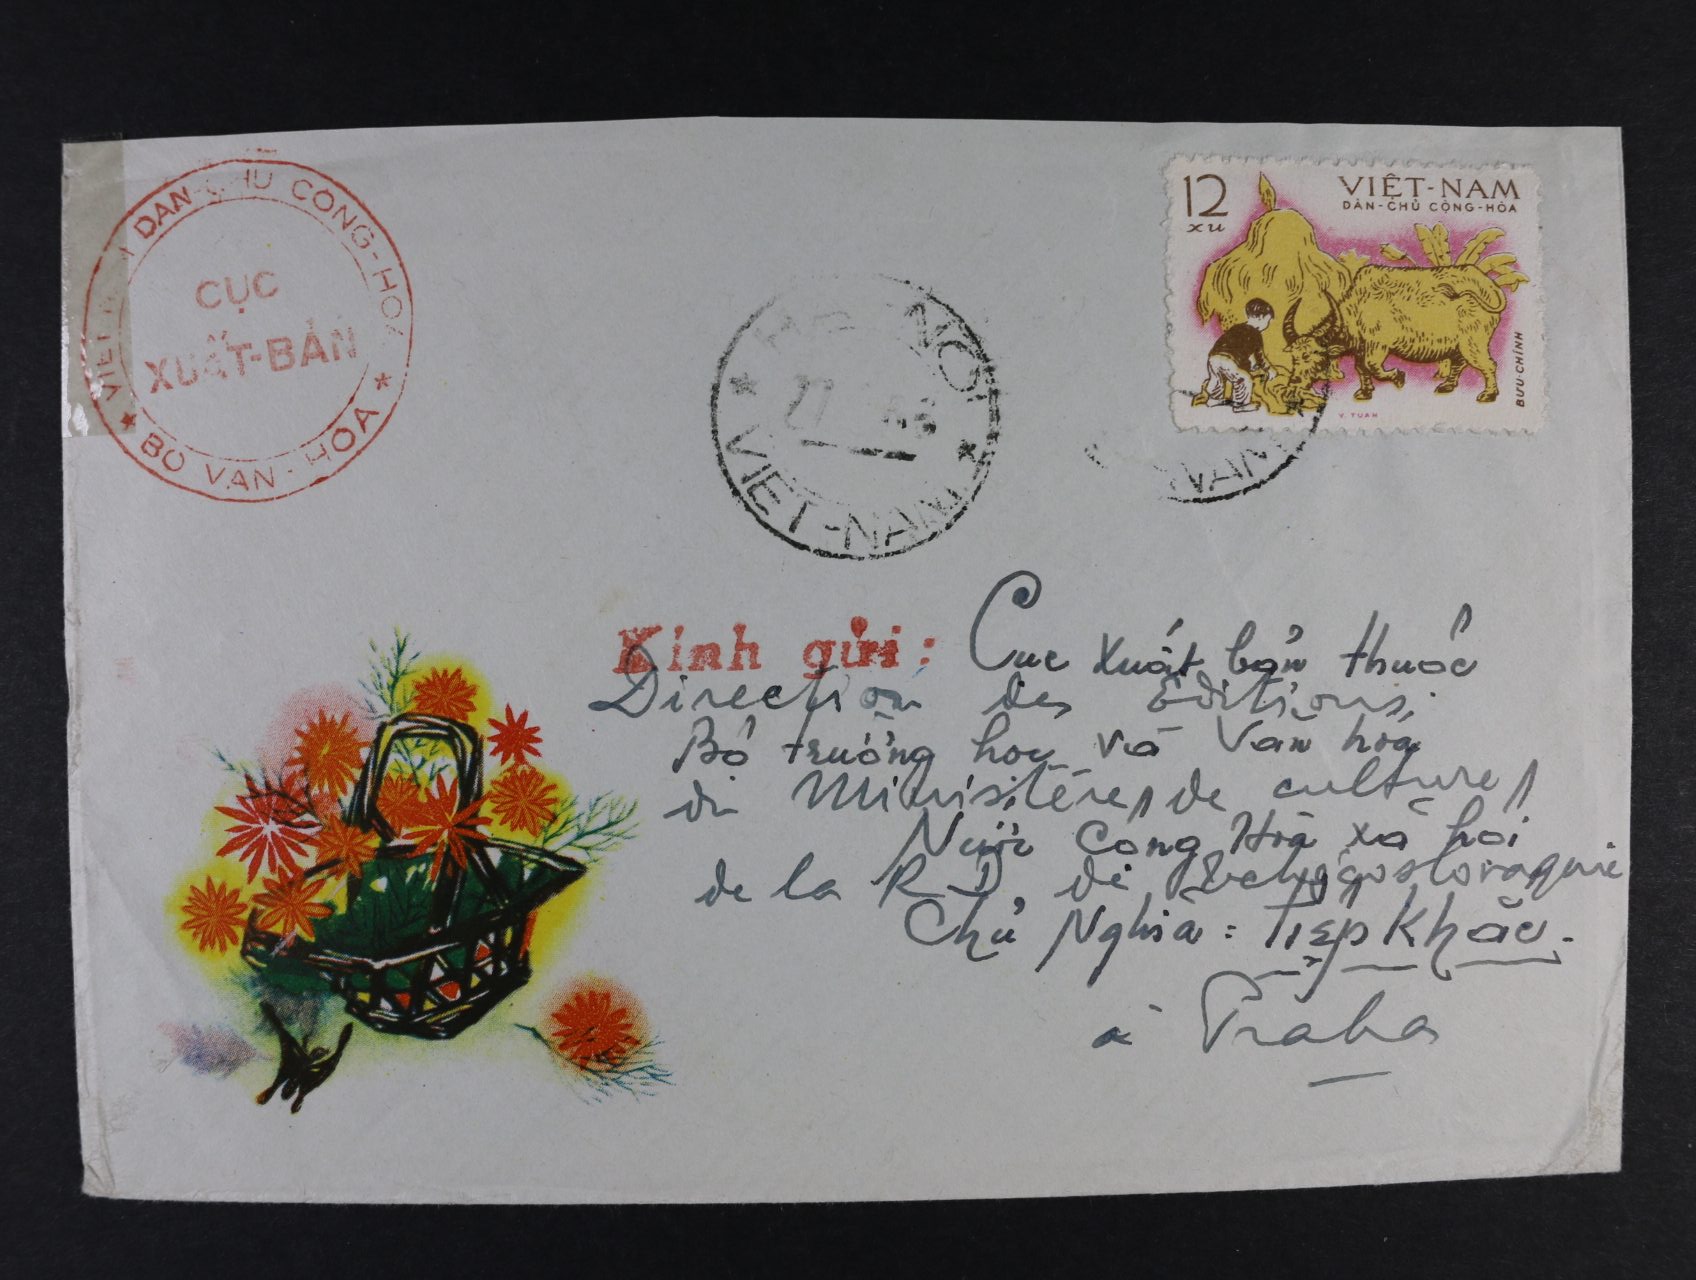 VIỆT NAM DÂN-CHỦ CỘNG-HÒA
CỤC
XUẤT-BẢN
★ BỘ VĂN-HÓA ★
12
xu
VIỆT-NAM
DÂN-CHỦ CỘNG-HÒA
BƯU-CHÍNH
V. TUAN
HÀ-NỘI
VIET-NAM
VIET-NAM
Kính gửi: Cục xuất bản thuộc
Direction des Editions
Bộ trường học và Văn hóa
du Ministère de culture
Nước Cộng Hòa xã hội
de la R. D. de Tchécoslovaquie
Chủ Nghĩa: Tiệp Khắc.
à Praha